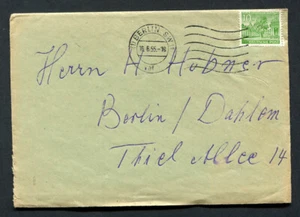 BERLIN SW
16.8.55.-18
Herrn H. Hübner
Berlin / Dahlem
Thiel Allee 14